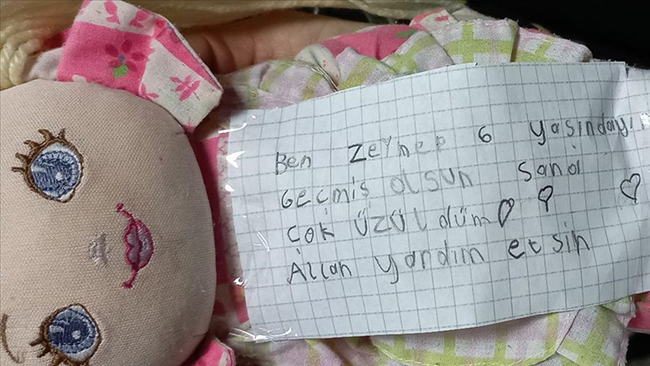 Ben Zeynep 6 yaşındayım
Geçmiş olsun sana
Çok üzüldüm
Allah yardım etsin